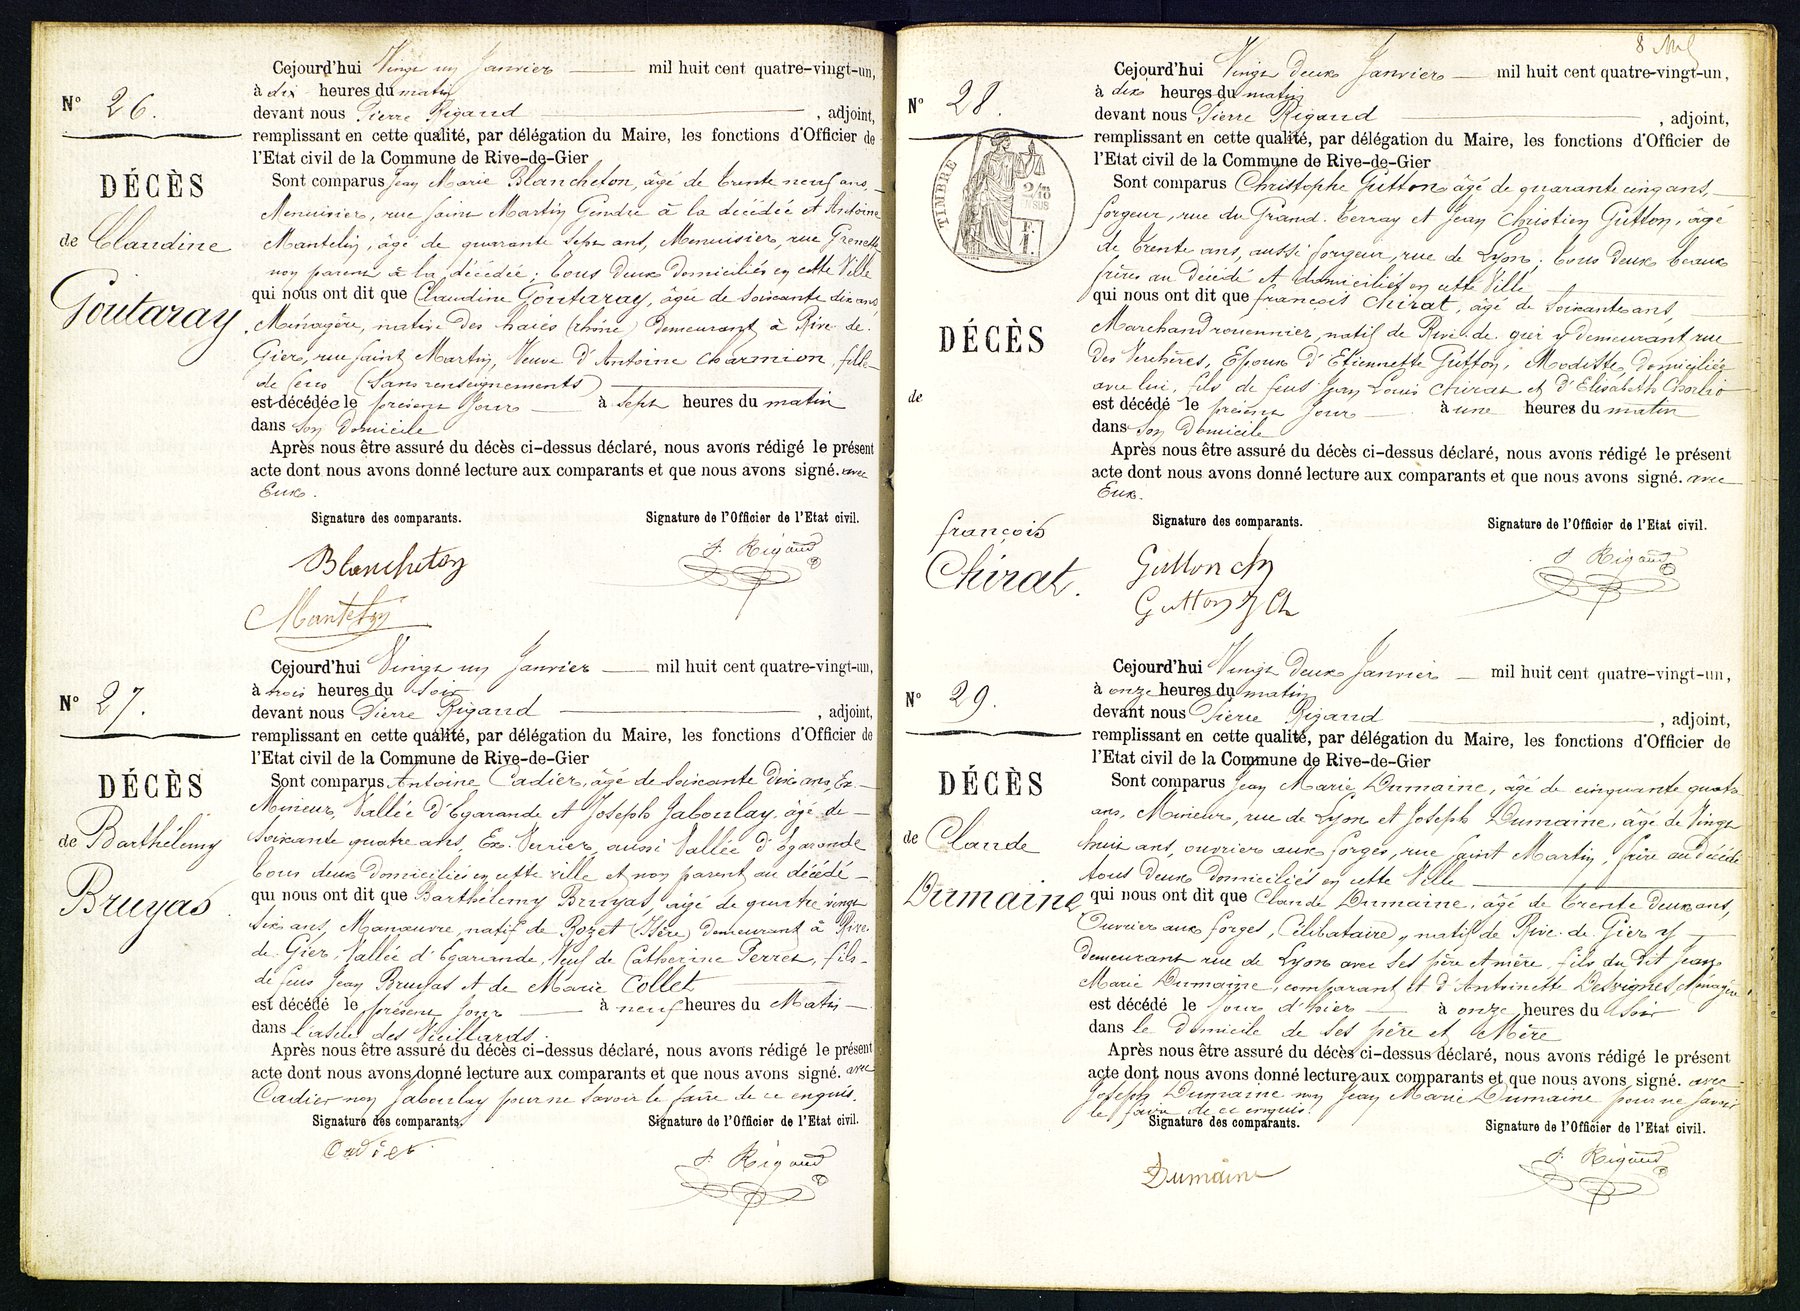 Cejourd'hui Vingt un Janvier mil huit cent quatre-vingt-un,
à dix heures du matin
N° 26.
devant nous Pierre Rigaud, adjoint,
remplissant en cette qualité, par délégation du Maire, les fonctions d'Officier de
l'Etat civil de la Commune de Rive-de-Gier
DÉCÈS
Sont comparus Jean Marie Blancheton, âgé de trente neuf ans,
Menuisier, rue Saint Martin Gendre à la décédée et Antoine
de Claudine
Mantelin, âgé de quarante sept ans, Menuisier, rue Grenette
non parent à la décédée; tous deux domiciliés en cette Ville
Goutaray
qui nous ont dit que Claudine Goutaray, âgée de soixante dix ans,
Ménagère, native des haies (rhône) demeurant à Rive-de-
Gier, rue Saint Martin, Veuve d'Antoine Charmion, fille
de feus (Sans renseignements)
est décédée le présent Jour à sept heures du matin
dans son domicile
Après nous être assuré du décès ci-dessus déclaré, nous avons rédigé le présent
acte dont nous avons donné lecture aux comparants et que nous avons signé. avec
Eux.
Signature des comparants. Signature de l'Officier de l'Etat civil.
Blancheton
P. Rigaud
Mantelin
Cejourd'hui Vingt un Janvier mil huit cent quatre-vingt-un,
à trois heures du soir
N° 27.
devant nous Pierre Rigaud, adjoint,
remplissant en cette qualité, par délégation du Maire, les fonctions d'Officier de
l'Etat civil de la Commune de Rive-de-Gier
DÉCÈS
Sont comparus Antoine Cadier, âgé de soixante dix ans, Ex-
Mineur, Vallée d'Egarande et Joseph Jaboulay, âgé de
soixante quatre ans, Ex. Verrier, aussi Vallée d'Egarande
de Barthélemy
tous deux domiciliés en cette ville et non parent au décédé
Bruyas
qui nous ont dit que Barthélemy Bruyas, âgé de quatre vingt
six ans, Manœuvre, natif de Rozet (Isère) demeurant à Rive-
de-Gier, Vallée d'Egarande, Veuf de Catherine Perret, fils
de feus Jean Bruyas et de Marie Collet
est décédé le présent Jour à neuf heures du Matin
dans l'asile des Vieillards.
Après nous être assuré du décès ci-dessus déclaré, nous avons rédigé le présent
acte dont nous avons donné lecture aux comparants et que nous avons signé. avec
Cadier non Jaboulay pour ne savoir le faire de ce enquis.
Signature des comparants. Signature de l'Officier de l'Etat civil.
Cadier
P. Rigaud
8
Cejourd'hui Vingt deux Janvier mil huit cent quatre-vingt-un,
à dix heures du matin
N° 28.
devant nous Pierre Rigaud, adjoint,
remplissant en cette qualité, par délégation du Maire, les fonctions d'Officier de
l'Etat civil de la Commune de Rive-de-Gier
TIMBRE
2/10 EN SUS
Sont comparus Christophe Gutton âgé de quarante cinq ans,
forgeur, rue du Grand. terray et Jean Christien Gutton, âgé
de trente ans, aussi forgeur, rue de Lyon; tous deux beaux
frères au décédé et domiciliés en cette Ville
DÉCÈS
qui nous ont dit que françois Chirat, âgé de soixante ans,
Marchand rouennier, natif de Rive-de-gier y demeurant rue
des Verchères, Epoux d'Etiennette Gutton, Modiste, domiciliée
avec lui, fils de feus Jean Louis Chirat et d'Elisabeth
de
est décédé le présent Jour à une heures du matin
dans son domicile
Après nous être assuré du décès ci-dessus déclaré, nous avons rédigé le présent
acte dont nous avons donné lecture aux comparants et que nous avons signé. avec
Eux.
Signature des comparants. Signature de l'Officier de l'Etat civil.
françois
Chirat.
Gutton ch
P. Rigaud
Gutton J Ch
Cejourd'hui Vingt deux Janvier mil huit cent quatre-vingt-un,
à onze heures du matin
N° 29.
devant nous Pierre Rigaud, adjoint,
remplissant en cette qualité, par délégation du Maire, les fonctions d'Officier de
l'Etat civil de la Commune de Rive-de-Gier
DÉCÈS
Sont comparus Jean Marie Dumaine, âgé de cinquante quatre
ans, Mineur, rue de Lyon et Joseph Dumaine, âgé de Vingt
de Claude
huit ans, ouvrier aux forges, rue Saint Martin, frère au décédé
tous deux domiciliés en cette Ville
Dumaine
qui nous ont dit que Claude Dumaine, âgé de trente deux ans,
Ouvrier aux forges, Célibataire, natif de Rive-de-Gier y
demeurant rue de Lyon avec ses père et mère, fils du dit Jean
Marie Dumaine, comparant et d'Antoinette Desvignes, Ménagère
est décédé le Jour d'hier à onze heures du soir
dans le domicile de ses père et Mère
Après nous être assuré du décès ci-dessus déclaré, nous avons rédigé le présent
acte dont nous avons donné lecture aux comparants et que nous avons signé. avec
Joseph Dumaine non Jean Marie Dumaine pour ne savoir
le faire de ce enquis.
Signature des comparants. Signature de l'Officier de l'Etat civil.
Dumaine
P. Rigaud